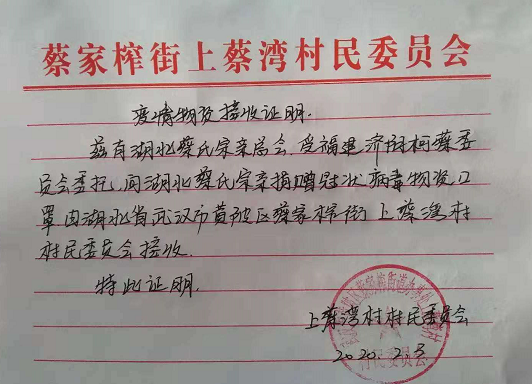 蔡家榨街上蔡湾村民委员会
疫情物资接收证明.
兹有湖北蔡氏宗亲总会,受福建济阳柯蔡委
员会委托,向湖北蔡氏宗亲捐赠冠状病毒物资口
罩由湖北省武汉市黄陂区蔡家榨街上蔡湾村
村民委员会接收.
特此证明.
上蔡湾村村民委员会
2020.2.3
村民委员会